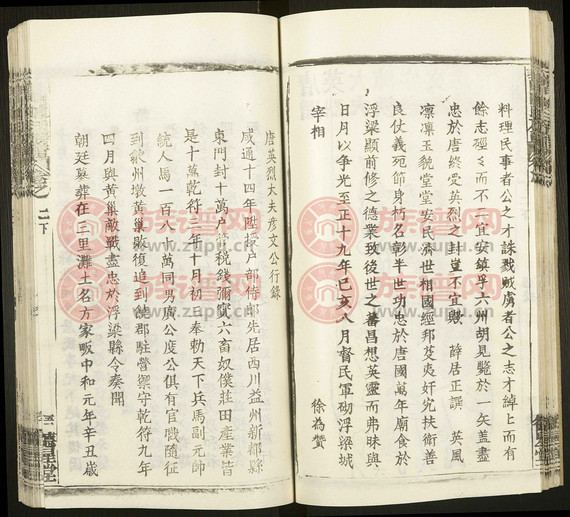 料理民事者公之才誅戮賊虜者公之志才綽上而有
餘志經〻而不一宜安鎮孚六州胡見斃於一矢蓋盡
忠於唐終受英烈之封豈不宜歟 薛居正譔 英風
凛凛玉貌堂堂安民濟世相國經邦芟夷奸宄扶衛善
良仗義死節身朽名彰半世功忠於唐國萬年廟食於
浮梁顯前修之德業致後世之蕃昌想英靈而弗昧與
日月以争光至正十九年己亥八月督民軍砌浮梁城
宰相 徐為贊
唐英烈大夫彦文公行錄
咸通十四年陞
東門封十萬户
是十萬乾符三年十月初三奉勅天下兵馬副元帥
統人馬一百八十萬同男廣公度公俱有官職隨征
到歙州墩黄巢敗復追到饒郡駐營禦守乾符九年
四月與黄巢敵戰盡忠於浮梁縣令奏聞
朝廷墓葬在三里灘土名方家畈中和元年辛丑歲
卷之二下
族谱网
www.zupu.cn